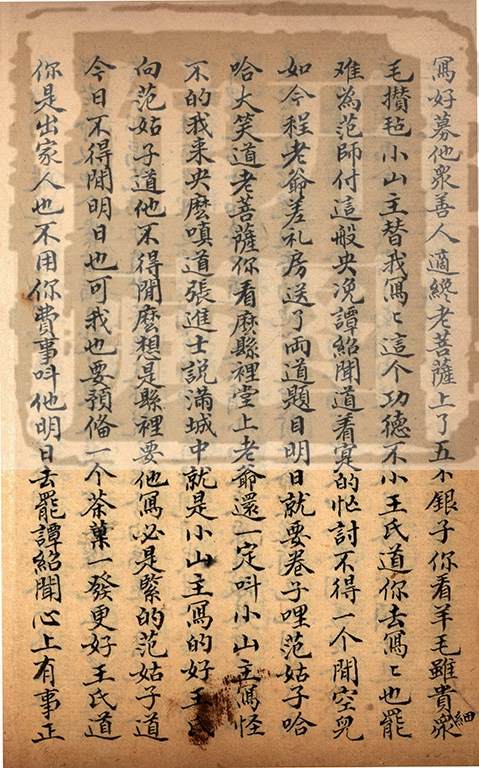 寫好募他衆善人適終老菩薩上了五不銀子你看羊毛雖貴衆細
毛攅毡小山主替我寫〻這个功德不小王氏道你去寫〻也罷
难為范師付這般央浼譚紹聞道着寔的忙討不得一个閒空兒
如今程老爺差礼房送了两道題目明日就要卷子哩范姑子哈
哈大笑道老菩薩你看麽縣裡堂上老爺還一定呌小山主寫怪
不的我来央麽嗔道張進士説滿城中就是小山主寫的好王氏
向范姑子道他不得閒麽想是縣裡要他寫必是緊的范姑子道
今日不得閒明日也可我也要預俻一个茶菓一發更好王氏道
你是出家人也不用你費事呌他明日去罷譚紹聞心上有事正